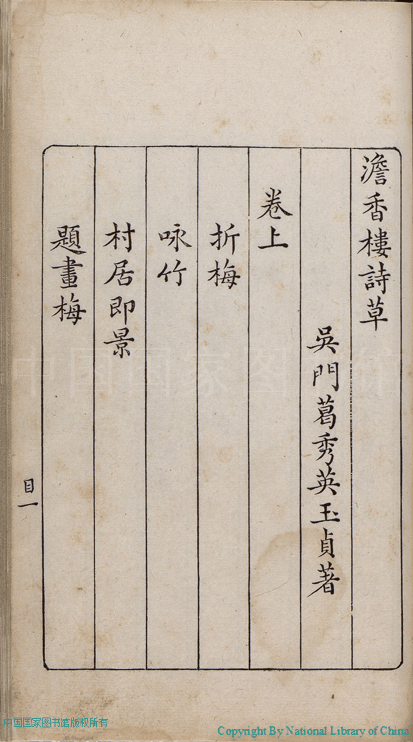 澹香樓詩草
吳門葛秀英玉貞著
卷上
折梅
咏竹
村居即景
題畫梅
目一
中国国家图书馆
中国国家图书馆版权所有
Copyright By National Library of China